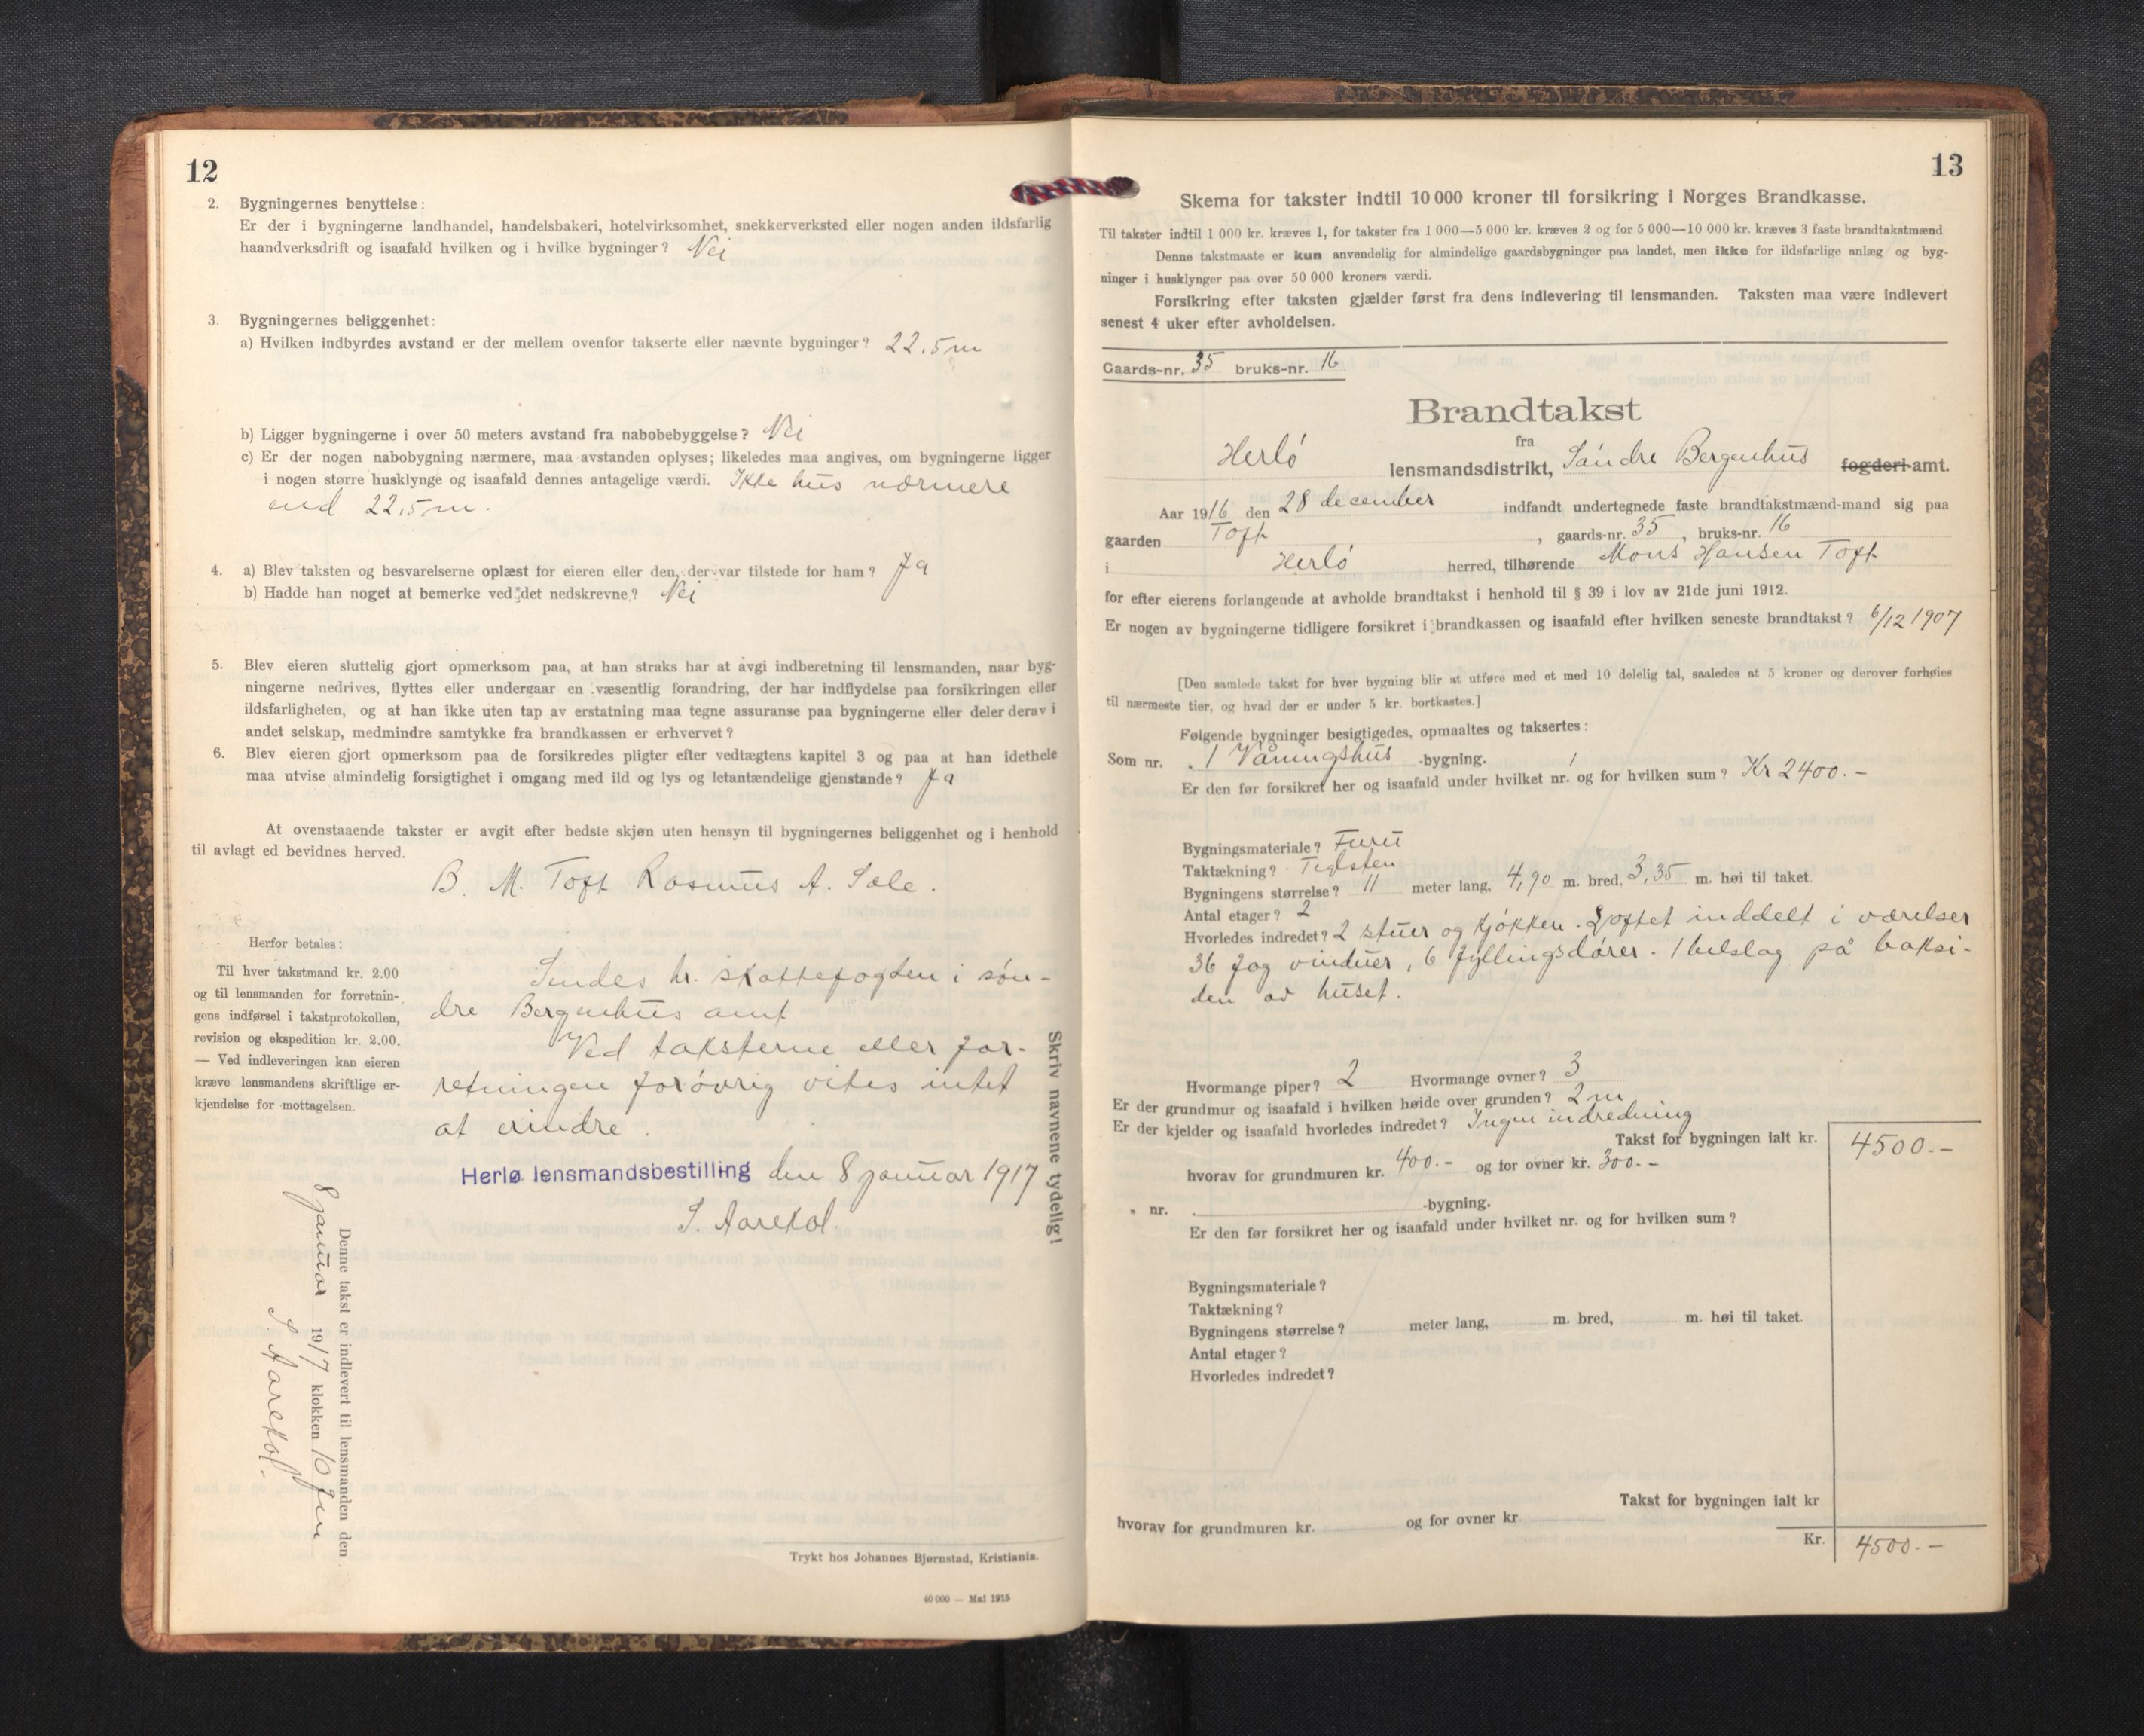 12
2. Bygningernes benyttelse:
Er der i bygningerne landhandel, handelsbakeri, hotelvirksomhet, snekkerverksted eller nogen anden ildsfarlig
haandverksdrift og isaafald hvilken og i hvilke bygninger? Nei
3. Bygningernes beliggenhet:
a) Hvilken indbyrdes avstand er der mellem ovenfor takserte eller nævnte bygninger? 22,5 m
b) Ligger bygningerne i over 50 meters avstand fra nabobebyggelse? Nei
c) Er der nogen nabobygning nærmere, maa avstanden oplyses; likeledes maa angives, om bygningerne ligger
i nogen større husklynge og isaafald dennes antagelige værdi. Ikke hus nærmere
end 22,5 m.
4. a) Blev taksten og besvarelserne oplæst for eieren eller den, der var tilstede for ham? Ja
b) Hadde han noget at bemerke ved det nedskrevne? Nei
5. Blev eieren sluttelig gjort opmerksom paa, at han straks har at avgi indberetning til lensmanden, naar byg-
ningerne nedrives, flyttes eller undergaar en væsentlig forandring, der har indflydelse paa forsikringen eller
ildsfarligheten, og at han ikke uten tap av erstatning maa tegne assuranse paa bygningerne eller deler derav i
andet selskap, medmindre samtykke fra brandkassen er erhvervet?
6. Blev eieren gjort opmerksom paa de forsikredes pligter efter vedtægtens kapitel 3 og paa at han idethele
maa utvise almindelig forsigtighet i omgang med ild og lys og letantændelige gjenstande? Ja
At ovenstaaende takster er avgit efter bedste skjøn uten hensyn til bygningernes beliggenhet og i henhold
til avlagt ed bevidnes herved.
B. M. Toft Rasmus A. Sæle.
Herfor betales:
Til hver takstmand kr. 2.00
og til lensmanden for forretnin-
gens indførsel i takstprotokollen,
revision og ekspedition kr. 2.00.
— Ved indleveringen kan eieren
kræve lensmandens skriftlige er-
kjendelse for mottagelsen.
Sendes hr. skattefogden i søn-
dre Bergenhus amt
Ved taksterne eller for-
retningen forøvrig vites intet
at erindre.
Herlø lensmandsbestilling den 8 januar 1917
S. Aarekol.
Skriv navnene tydelig!
Denne takst er indlevert til lensmanden den
8 januar 1917 klokken 10 fm
S Aarekol.
Trykt hos Johannes Bjørnstad, Kristiania.
40 000 — Mai 1915
13
Skema for takster indtil 10 000 kroner til forsikring i Norges Brandkasse.
Til takster indtil 1 000 kr. kræves 1, for takster fra 1 000—5 000 kr. kræves 2 og for 5 000—10 000 kr. kræves 3 faste brandtakstmænd
Denne takstmaate er kun anvendelig for almindelige gaardsbygninger paa landet, men ikke for ildsfarlige anlæg og byg-
ninger i husklynger paa over 50 000 kroners værdi.
Forsikring efter taksten gjælder først fra dens indlevering til lensmanden. Taksten maa være indlevert
senest 4 uker efter avholdelsen.
Gaards-nr. 35 bruks-nr. 16
Brandtakst
fra
Herlö lensmandsdistrikt, Söndre Bergenhus fogderi-amt.
Aar 1916 den 28 december indfandt undertegnede faste brandtakstmænd-mand sig paa
gaarden Toft, gaards-nr. 35, bruks-nr. 16
i Herlö herred, tilhørende Mons Hansen Toft
for efter eierens forlangende at avholde brandtakst i henhold til § 39 i lov av 21de juni 1912.
Er nogen av bygningerne tidligere forsikret i brandkassen og isaafald efter hvilken seneste brandtakst? 6/12 1907
[Den samlede takst for hver bygning blir at utføre med et med 10 delelig tal, saaledes at 5 kroner og derover forhøies
til nærmeste tier, og hvad der er under 5 kr. bortkastes.]
Følgende bygninger besigtigedes, opmaaltes og taksertes:
Som nr. 1 Våningshus -bygning.
Er den før forsikret her og isaafald under hvilket nr. og for hvilken sum? 1 Kr 2400.-
Bygningsmateriale? Furu
Taktækning? Teglsten
Bygningens størrelse? 11 meter lang, 4,90 m. bred, 3,35 m. høi til taket.
Antal etager? 2
Hvorledes indredet? 2 stuer og kjökken. Loftet inddelt i værelser
36 fag vinduer, 6 fyllingsdörer. 1 utslag på baksi-
den av huset.
Hvormange piper? 2 Hvormange ovner? 3
Er der grundmur og isaafald i hvilken høide over grunden? 2 m
Er der kjelder og isaafald hvorledes indredet? Ingen indredning
Takst for bygningen ialt kr. 4500.-
hvorav for grundmuren kr. 400.- og for ovner kr. 300.-
" nr. -bygning.
Er den før forsikret her og isaafald under hvilket nr. og for hvilken sum?
Bygningsmateriale?
Taktækning?
Bygningens størrelse? meter lang, m. bred, m. høi til taket.
Antal etager?
Hvorledes indredet?
Takst for bygningen ialt kr
hvorav for grundmuren kr. og for ovner kr
Kr. 4500.-